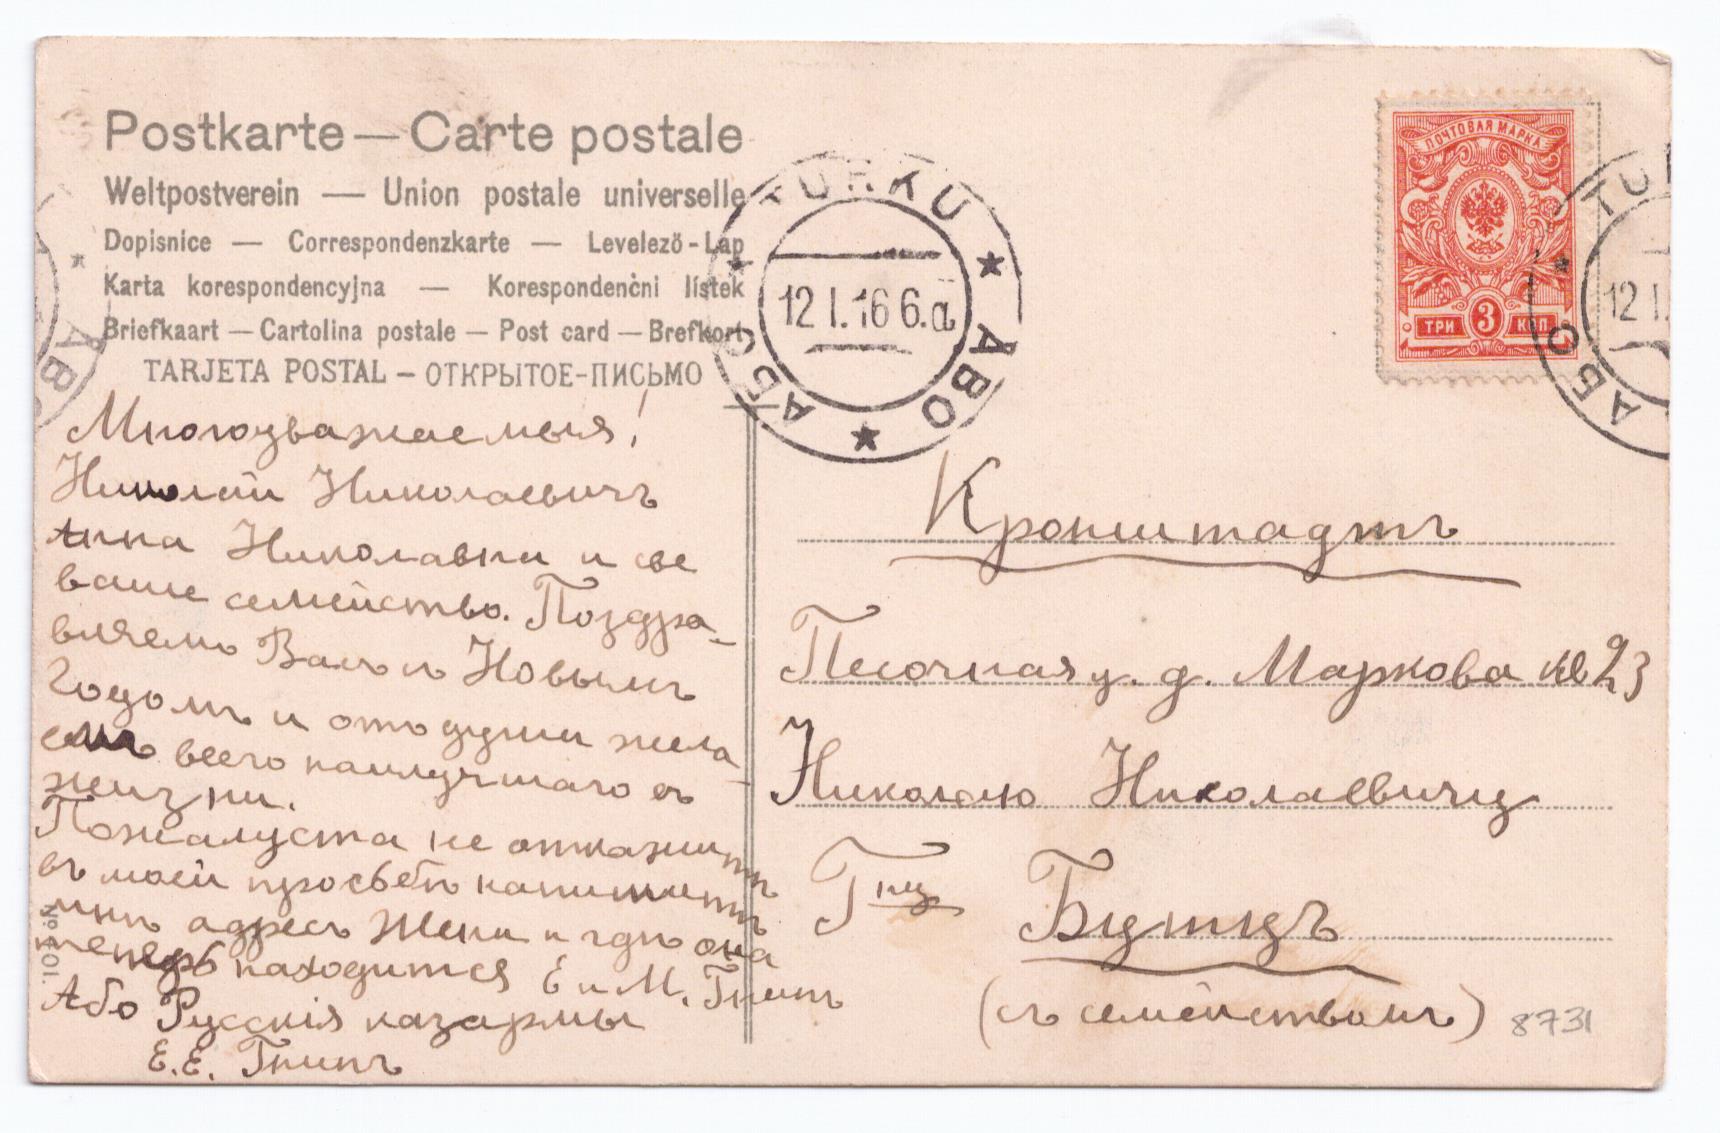 Postkarte — Carte postale
Weltpostverein — Union postale universelle
Dopisnice — Correspondenzkarte — Levelező-Lap
Karta korespondencyjna — Korespondenční lístek
Briefkaart — Cartolina postale — Post card — Brefkort
TARJETA POSTAL – ОТКРЫТОЕ-ПИСЬМО
TURKU
12 I. 16 6.a
ABO
АБО
ПОЧТОВАЯ МАРКА
ТРИ 3 КОП
TU
12 I.
АБО
ABO
Многоуважаемыя!
Николай Николаевичъ
Анна Николавна и све
ваше семейство. Поздра-
вляемъ Васъ съ Новымъ
Годомъ и отъ души жела-
емъ всего наилучшаго въ
жизни.
Пожалуста не откажитѣ
въ моей просьбѣ напишитѣ
мнѣ адресъ Жени и гдѣ она
теперь находится Е и М. Гнипъ
Або Русскія казармы
Е.Е. Гнипъ
№ 401.
Кронштадтъ
Песочная у. д. Маркова кв 23
Николаю Николаевичу
Гну Бутцъ
(съ семействомъ)
8731